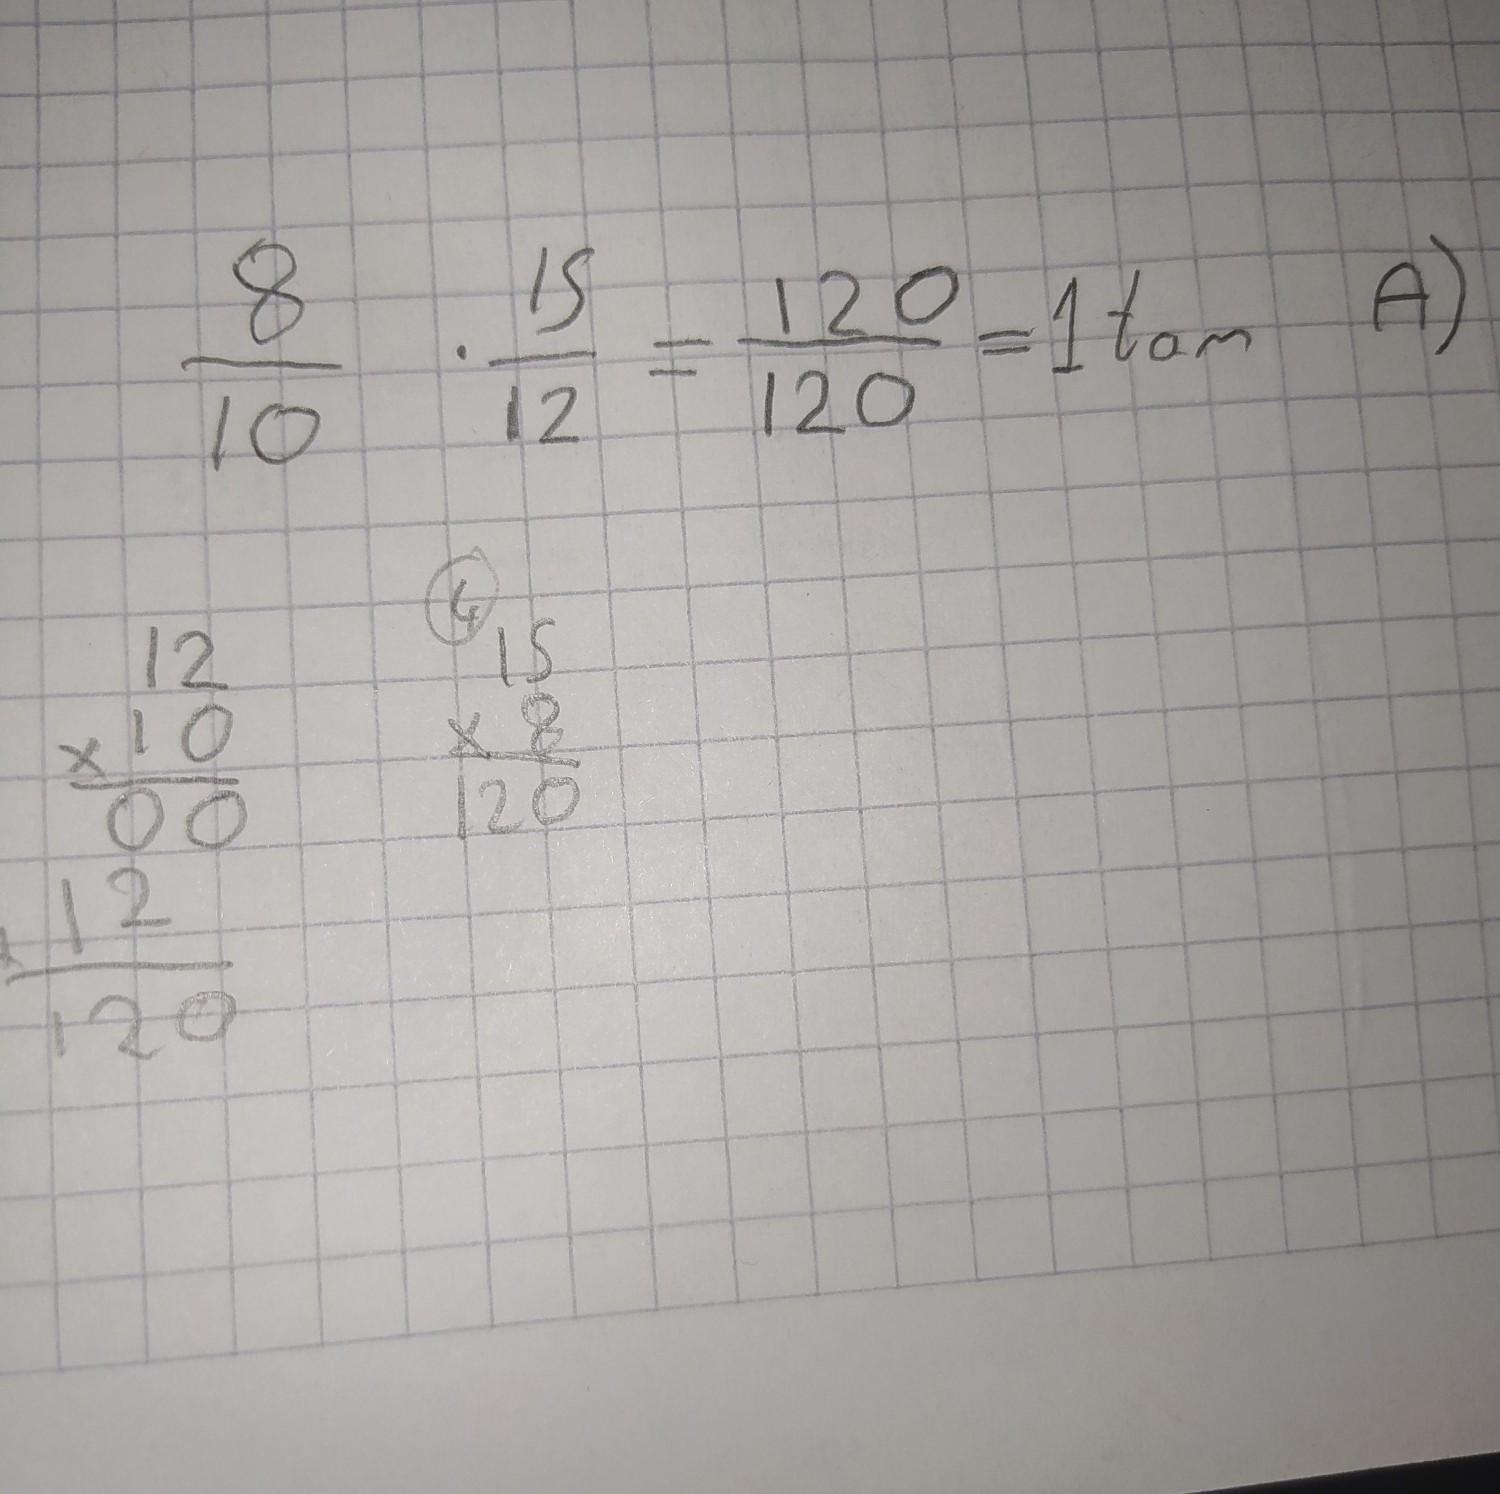 8/10 · 15/12 = 120/120 = 1 tam A)
12
x 10
00
+ 12
120
4
15
x 8
120